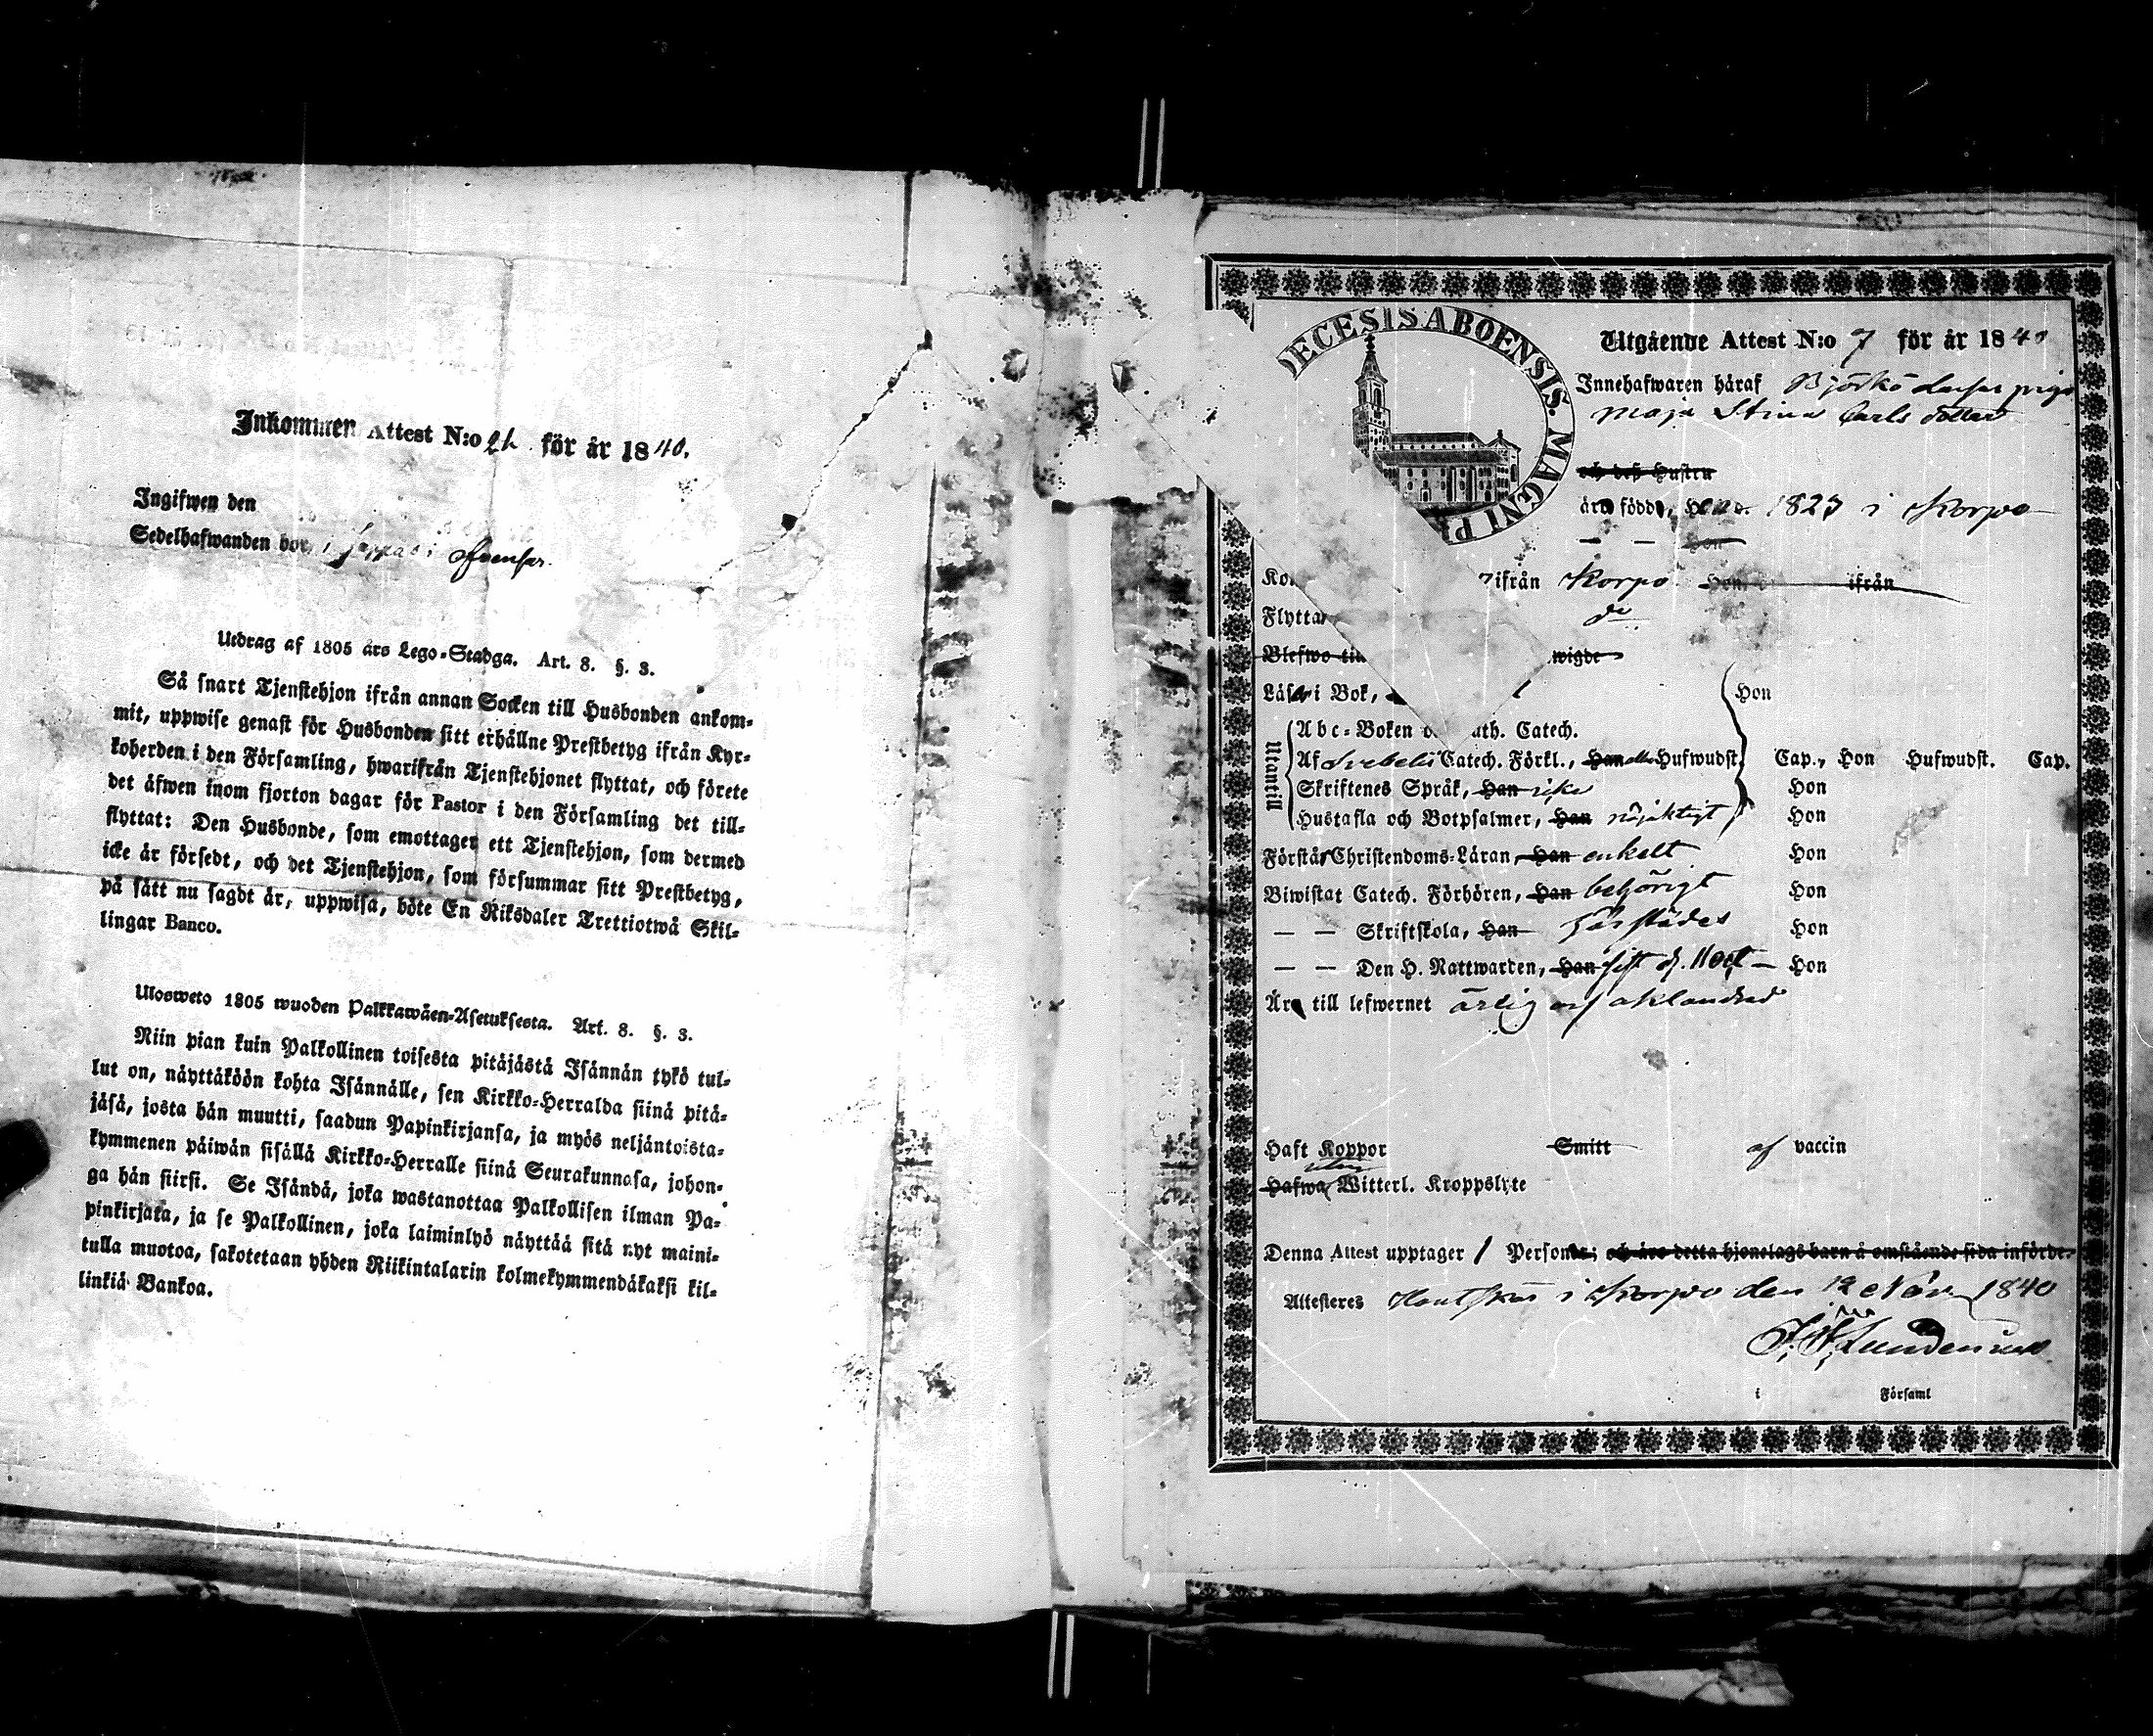 Inkommen Attest N:o för år 1840.
Ingifwen den
Sedelhafwanden bor i
Utdrag af 1805 års Lego-Stadga. Art. 8. §. 3.
Så snart Tjenstehjon ifrån annan Socken till Husbonden ankom-
mit, uppwise genast för Husbonden sitt erhållne Prestbetyg ifrån Kyr-
koherden i den Församling, hwarifrån Tjenstehjonet flyttat, och förete
det äfwen inom fjorton dagar för Pastor i den Församling det till-
flyttat: Den Husbonde, som emottager ett Tjenstehjon, som dermed
icke är försedt, och det Tjenstehjon, som försummar sitt Prestbetyg,
på sätt nu sagdt är, uppwisa, böte En Riksdaler Trettiotwå Skil-
lingar Banco.
Ulosweto 1805 wuoden Palkkawäen-Asetuksesta. Art. 8. §. 3.
Niin pian kuin Palkollinen toisesta pitäjästä Isännän tykö tul-
lut on, näyttäköön kohta Isännälle, sen Kirkko-Herralda siinä pitä-
jäsä, josta hän muutti, saadun Papinkirjansa, ja myös neljäntoista-
kymmenen päiwän sisällä Kirkko-Herralle siinä Seurakunnasa, johon-
ga hän siirsi. Se Isändä, joka wastanottaa Palkollisen ilman Pa-
pinkirjata, ja se Palkollinen, joka laiminlyö näyttää sitä nyt maini-
tulla muotoa, sakotetaan yhden Riikintalarin kolmekymmendäkaksi kil-
linkiä Bankoa.
DECESIS ABOENSIS. MAGNI P
Utgående Attest N:o 7 för år 1840
Innehafwaren häraf Björkö piga
Maja Stina Carls dotter
och deß Hustru
äro födde, 1823 i Korpo
— — Hon
ifrån Korpo Hon ifrån
Flyttar do
Blefwo till wigde
Läser i Bok, Hon
Utantill
Abc-Boken o ath. Catech.
Af Svebelii Catech. Förkl., Han alla Hufwudst. Cap., Hon Hufwudst. Cap.
Skriftenes Språk, Han Hon
Hustafla och Botpsalmer, Han nöjaktigt Hon
Förstår Christendoms-Läran, Han enkelt Hon
Biwistat Catech. Förhören, Han behörigt Hon
— — Skriftskola, Han härstädes Hon
— — Den H. Nattwarden, Han sist d. 11 Oct Hon
Äro till lefwernet ärlig och oklandrad
Haft Koppor Smitt af vaccin
utan
Hafwa Witterl. Kroppslyte
Denna Attest upptager 1 Person och äro detta hjonelags barn å omstående sida införde.
Attesteres Houtskär i Korpo den 12 Nov 1840
Lundenius
i Församl